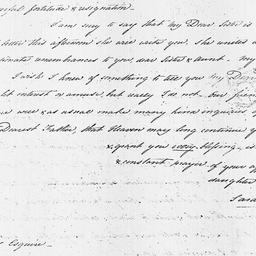 fortitude & resignation.
I am sorry to say that my Dear Sister is
better this afternoon she
remembrances to you, dear sister & aunt. my
I wish I knew of something to tell you my Dear
interest or amuse, but really I do not. our friends
are as usual make many kind inquiries
Dearest Father, that Heaven may long continue y
& grant you every blessing, is
& constant prayer of your a
daughter
Sara
Esquire.